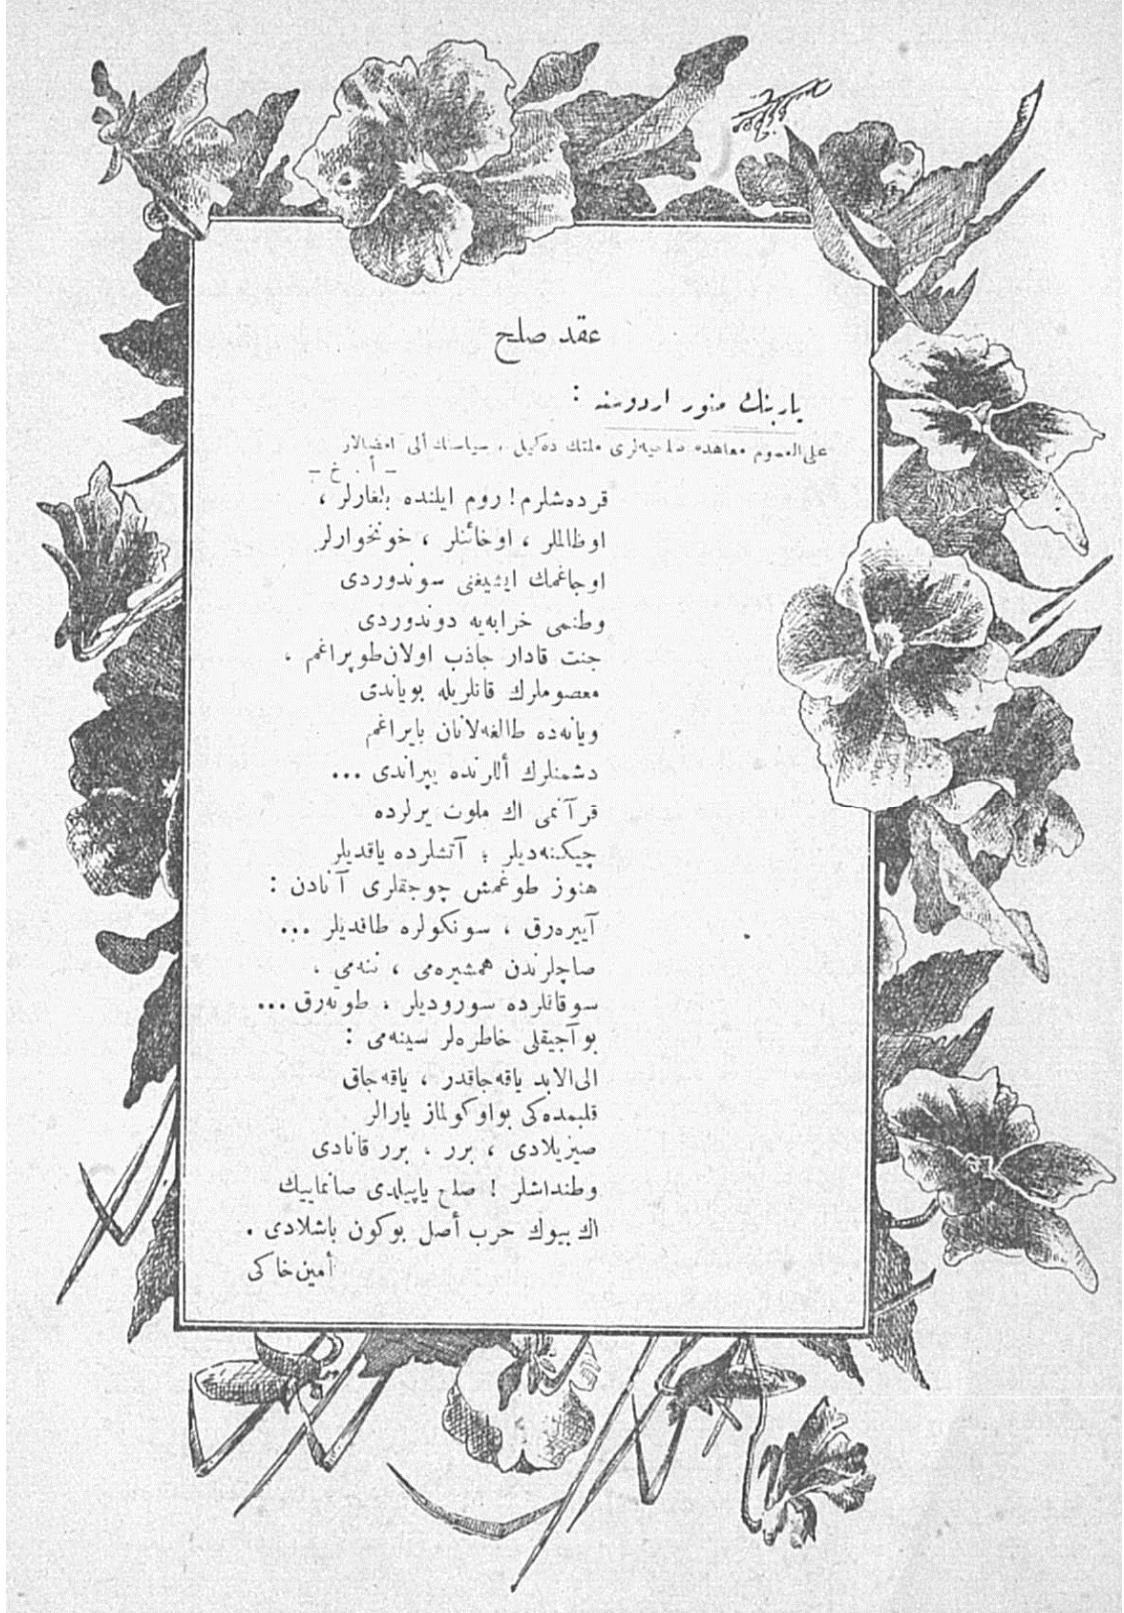 عقد صلح
يارينك منور اردوسنه :
على العموم معاهده صلحيه‌لرى ملتك دكيل ، سياستك ألى امضالار
- أ . خ -
قرده‌شلرم ! روم ايلنده بلغارلر ،
اوظالملر ، اوخائنلر ، خونخوارلر
اوجاغمك ايشيغنى سوندوردى
وطنمى خرابه‌يه دوندوردى
جنت قادار جاذب اولان طوپراغم ،
معصوملرك قانلريله بوياندى
ويانه‌ده طالغه‌لانان بايراغم
دشمنلرك أللرنده يپراندى ...
قرآنمى اك ملوث يرلرده
چيكنه‌ديلر ؛ آتشلرده ياقديلر
هنوز طوغمش چوجقلرى آنادن :
آييره‌رق ، سونكولره طاقديلر ...
صاچلرندن همشيره‌مى ، ننه‌مى ،
سوقاقلرده سوروديلر ، طوته‌رق ...
بو آجيقلى خاطره‌لر سينه‌مى :
الى الابد ياقه‌جاقدر ، ياقه‌جاق
قلبمده‌كى بو اوكولماز يارالر
صيزيلادى ، برر ، برر قانادى
وطنداشلر ! صلح ياپيلدى صانماييك
اك بيوك حرب أصل بوكون باشلادى .
أمين خاكى